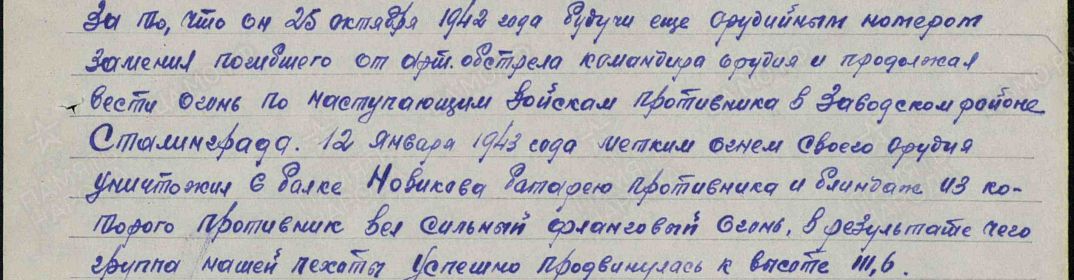 За то, что он 25 октября 1942 года будучи еще орудийным номером
заменил погибшего от арт. обстрела командира орудия и продолжая
вести огонь по наступающим войскам противника в Заводском районе
Сталинграда. 12 января 1943 года метким огнем своего орудия
уничтожил в балке Новикова батарею противника и блиндаж из ко-
торого противник вел сильный фланговый огонь, в результате чего
группа нашей пехоты успешно продвинулась к высоте 111,6.